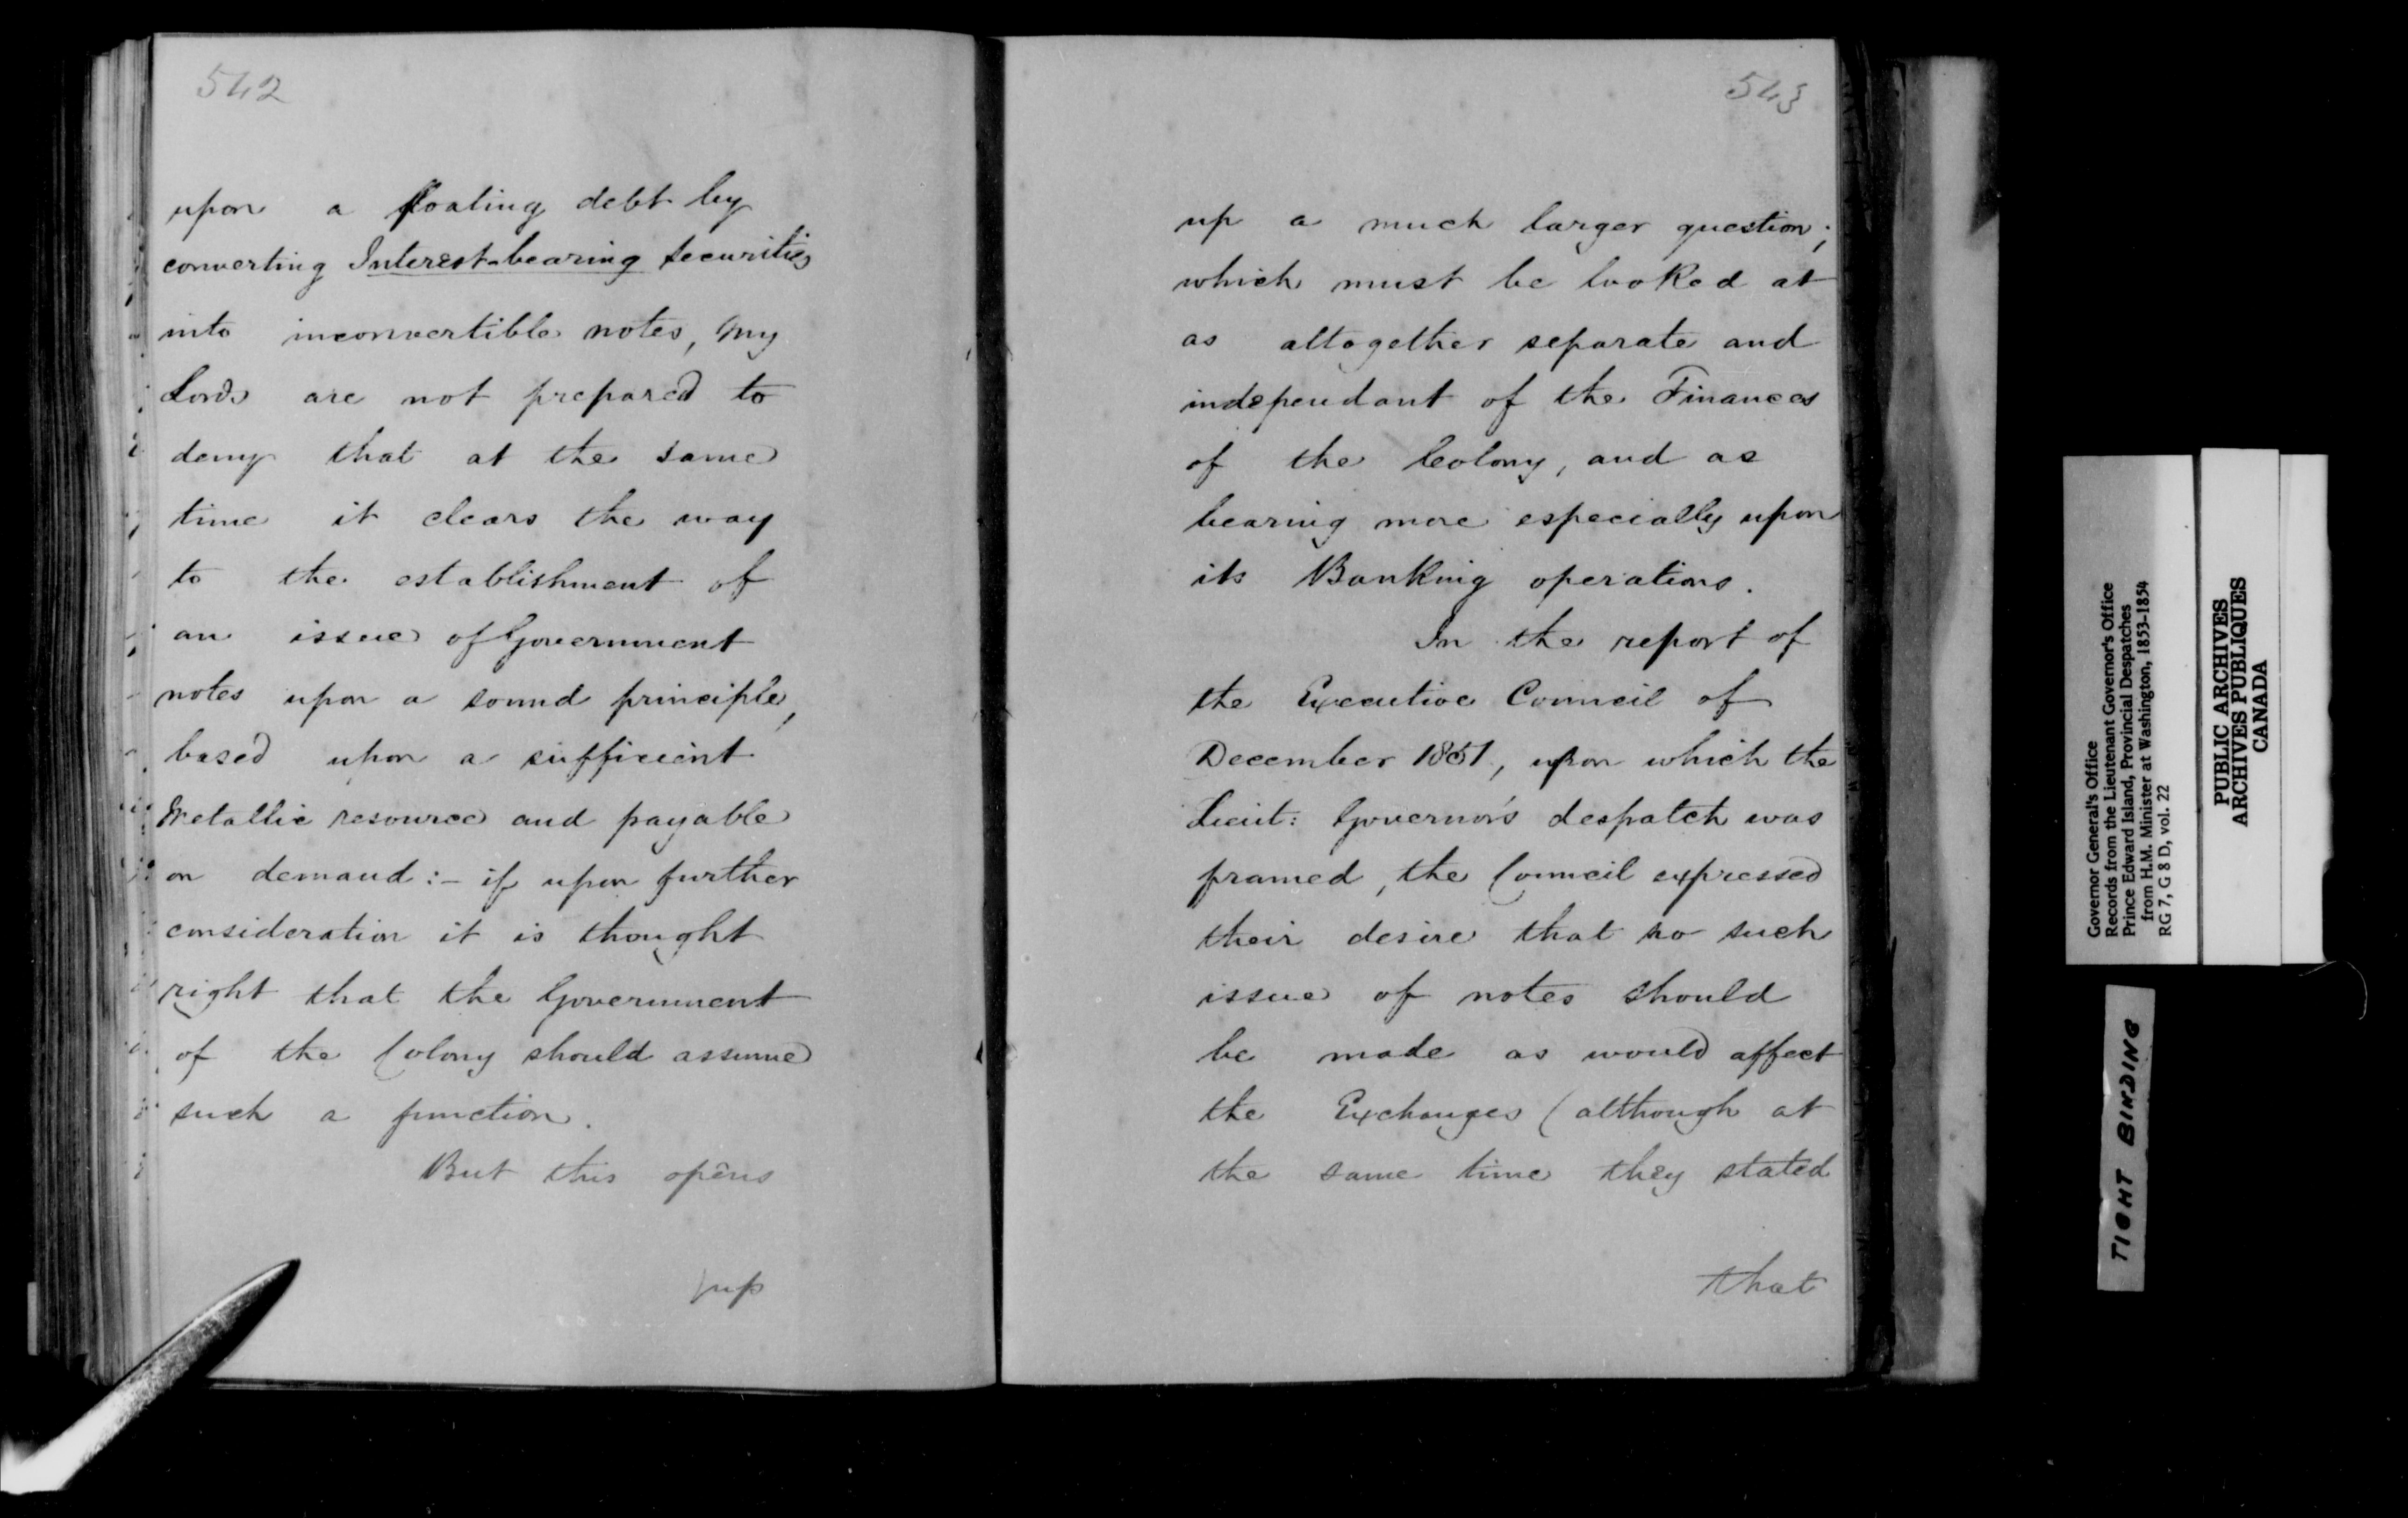 542
upon a floating debt by
converting Interest-bearing securities
into inconvertible notes, My
Lords are not prepared to
deny that at the same
time it clears the way
to the establishment of
an issue of Government
notes upon a sound principle,
based upon a sufficient
Metallic resource and payable
on demand:- if upon further
consideration it is thought
right that the Government
of the Colony should assume
such a function.
But this opens
up
543
up a much larger question;
which must be looked at
as altogether separate and
independant of the Finances
of the Colony, and as
bearing more especially upon
its Banking operations.
In the report of
the Executive Council of
December 1851, upon which the
Lieut: Governor's despatch was
framed, the Council expressed
their desire that no such
issue of notes should
be made as would affect
the Exchanges (although at
the same time they stated
that
Governor General's Office
Records from the Lieutenant Governor's Office
Prince Edward Island, Provincial Despatches
from H.M. Minister at Washington, 1853-1854
RG 7, G 8 D, vol. 22
PUBLIC ARCHIVES
ARCHIVES PUBLIQUES
CANADA
TIGHT BINDING